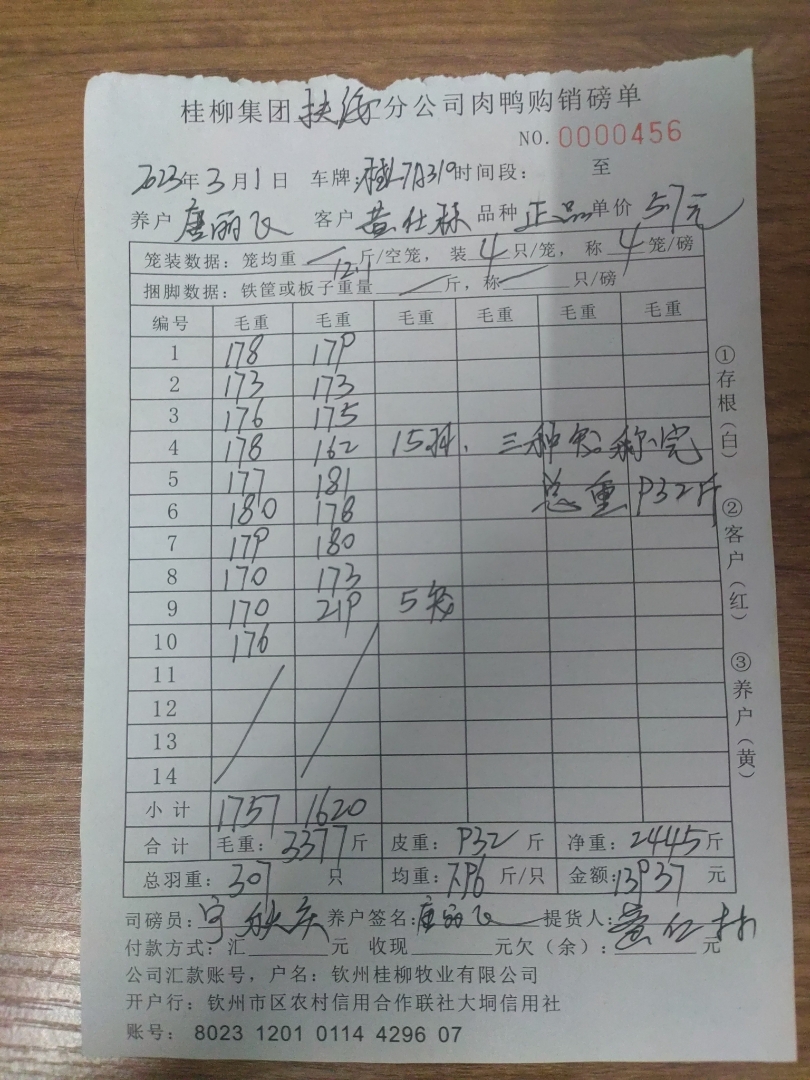 桂柳集团扶绥分公司肉鸭购销磅单
NO. 0000456
2023年3月1日 车牌:桂L7A319时间段: 至
养户 唐丽飞 客户 黄仕林 品种 正品 单价 5.7元
笼装数据: 笼均重 斤/空笼, 装4只/笼, 称4笼/磅
12.1
捆脚数据: 铁筐或板子重量 斤, 称 只/磅
编号 毛重 毛重 毛重 毛重 毛重 毛重
1 178 179
2 173 173
3 176 175
4 178 162 15只、三种笼称完
5 177 181 总重932斤
6 180 178
7 179 180
8 170 173
9 170 219 5笼
10 176
11
12
13
14
小计 1757 1620
合计 毛重: 3377斤 皮重: 932斤 净重: 2445斤
总羽重: 307 只 均重: 7.96 斤/只 金额: 13937 元
司磅员: 养户签名: 唐丽飞 提货人: 黄仕林
付款方式: 汇 元 收现 元欠(余): 元
公司汇款账号, 户名: 钦州桂柳牧业有限公司
开户行: 钦州市区农村信用合作联社大垌信用社
账号: 8023 1201 0114 4296 07
①存根(白)
②客户(红)
③养户(黄)